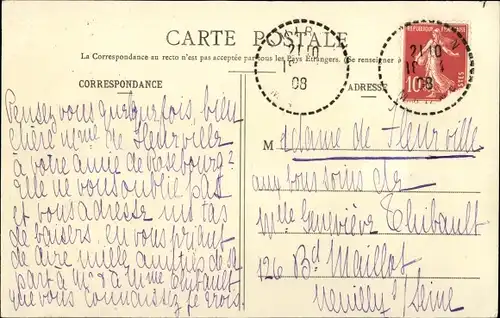 CARTE POSTALE
La Correspondance au recto n'est pas acceptée par tous les Pays Étrangers. (Se renseigner à
CORRESPONDANCE
ADRESSE
REPUBLIQUE FRANÇAISE
10
POSTES
21-10
08
21-10
08
Pensez vous quelquefois, bien
chère Mme de Fleurville
à votre amie de Rosebourg?
Elle ne vous oublie pas
et vous adresse un tas
de baisers en vous priant
de dire mille amitiés de sa
part à Mr & à Mme Thibault
que vous connaissez je crois.
Madame de Fleurville
aux bons soins de
Mlle Geneviève Thibault
126 Bd Maillot
Neuilly s/Seine